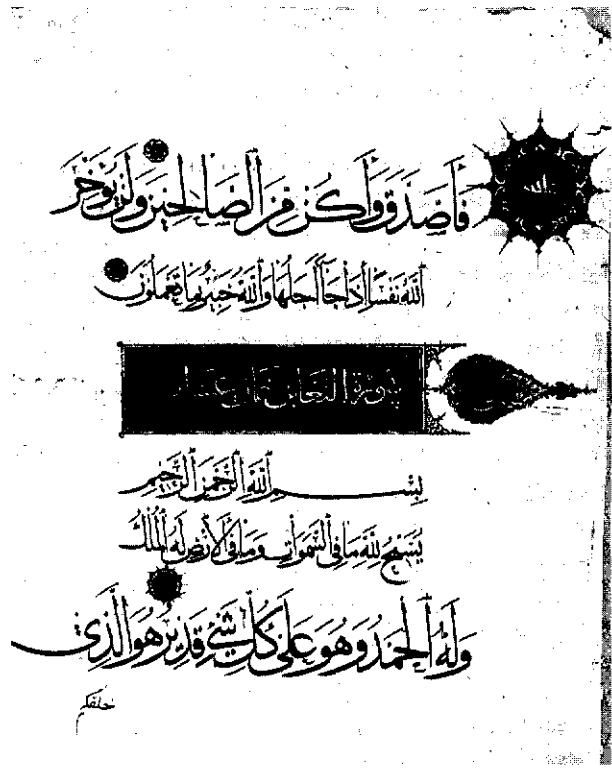 فَأَصَّدَّقَ وَأَكُن مِنَ ٱلصَّالِحِينَ وَلَن يُؤَخِّرَ
ٱللَّهُ نَفْسًا إِذَا جَآءَ أَجَلُهَا وَٱللَّهُ خَبِيرٌ بِمَا تَعْمَلُونَ
سورة التغابن ثمان عشر
بِسْمِ ٱللَّهِ ٱلرَّحْمَٰنِ ٱلرَّحِيمِ
يُسَبِّحُ لِلَّهِ مَا فِي ٱلسَّمَوَاتِ وَمَا فِي ٱلْأَرْضِ لَهُ ٱلْمُلْكُ
وَلَهُ ٱلْحَمْدُ وَهُوَ عَلَىٰ كُلِّ شَيْءٍ قَدِيرٌ هُوَ ٱلَّذِي
خلقكم